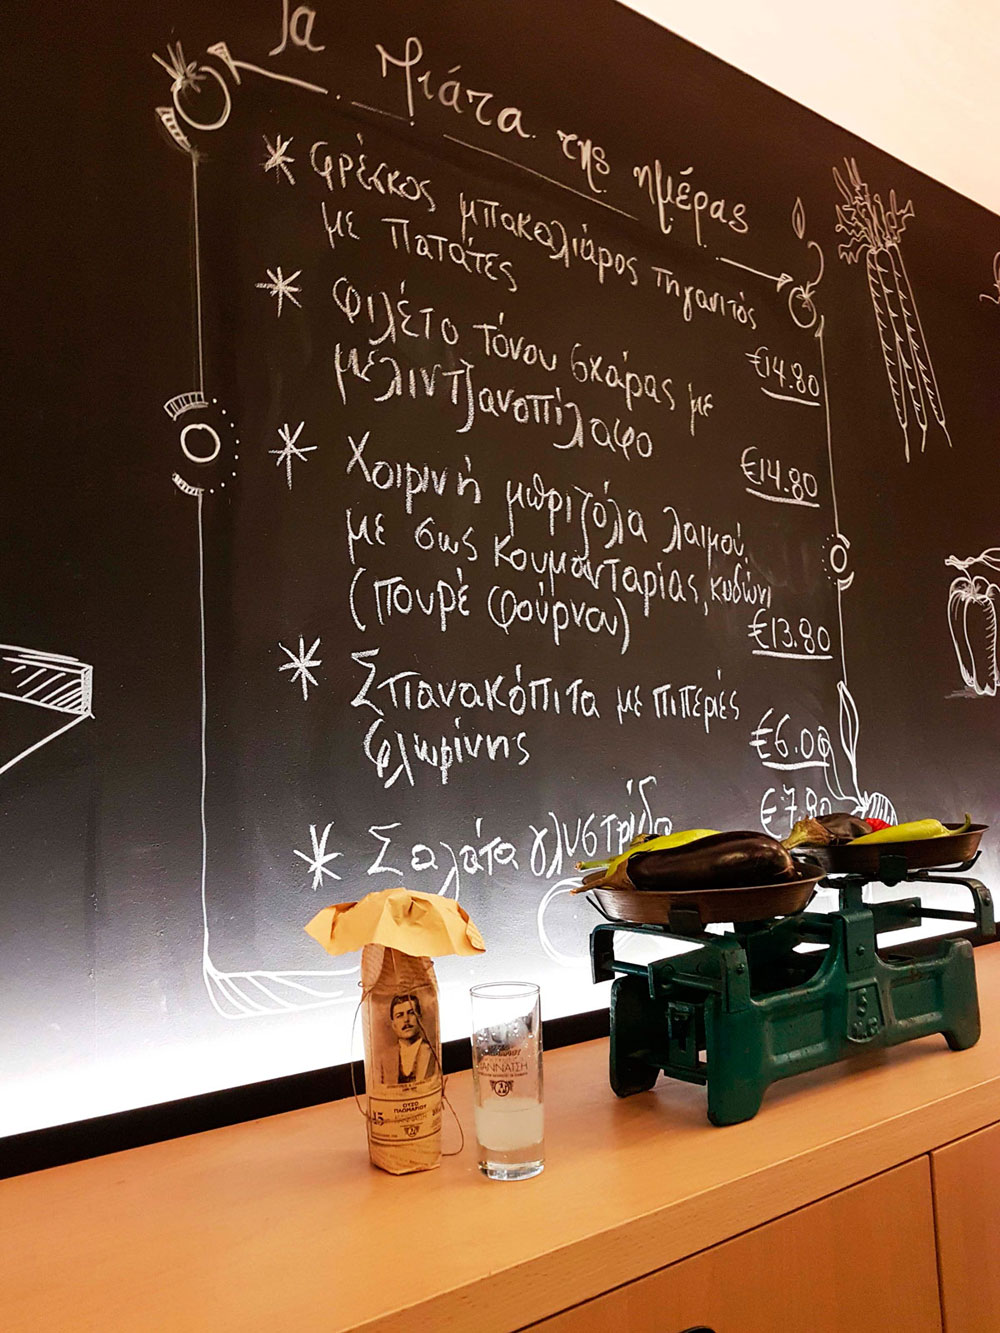 Τα Πιάτα της ημέρας
* Φρέσκος μπακαλιάρος τηγανιτός
με πατάτες
€14.80
* Φιλέτο τόνου σχάρας με
μελιντζανοπίλαφο
€14.80
* Χοιρινή μπριζόλα λαιμού
με σως κουμανταρίας, κυδώνι
(πουρέ φούρνου)
€13.80
* Σπανακόπιτα με πιπεριές
Φλωρίνης
€6.00
* Σαλάτα γλυστρίδα
€7.80
ΟΥΖΟ
ΠΛΩΜΑΡΙΟΥ
45